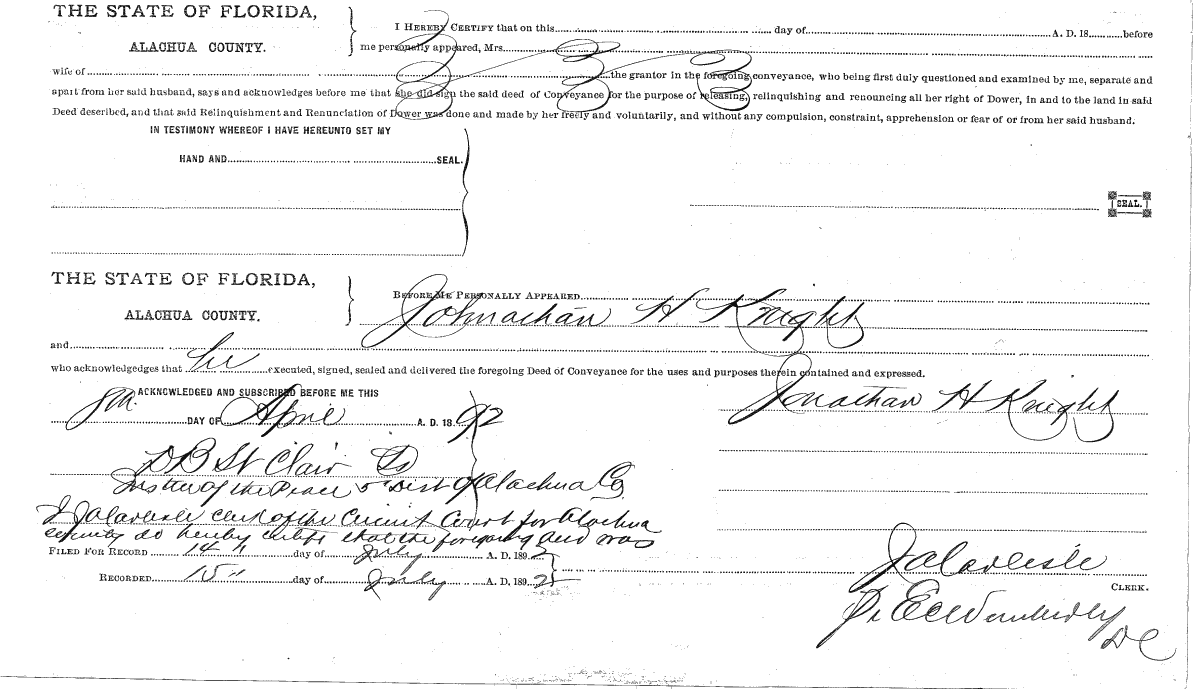 THE STATE OF FLORIDA,
ALACHUA COUNTY.
I HEREBY CERTIFY that on this day of A. D. 18 before
me personally appeared, Mrs.
wife of the grantor in the foregoing conveyance, who being first duly questioned and examined by me, separate and
apart from her said husband, says and acknowledges before me that she did sign the said deed of Conveyance for the purpose of releasing, relinquishing and renouncing all her right of Dower, in and to the land in said
Deed described, and that said Relinquishment and Renunciation of Dower was done and made by her freely and voluntarily, and without any compulsion, constraint, apprehension or fear of or from her said husband.
IN TESTIMONY WHEREOF I HAVE HEREUNTO SET MY
HAND AND SEAL.
SEAL.
THE STATE OF FLORIDA,
ALACHUA COUNTY.
BEFORE ME PERSONALLY APPEARED
Johnathan H Knight
and
who acknowledgedges that he executed, signed, sealed and delivered the foregoing Deed of Conveyance for the uses and purposes therein contained and expressed.
ACKNOWLEDGED AND SUBSCRIBED BEFORE ME THIS
DAY OF April A. D. 18 92
Jonathan H Knight
D B St Clair
Justice of the Peace 5 Dist of Alachua Co
J A Carlisle Clerk of the Circuit Court for Alachua
county do hereby certify that the foregoing deed was
FILED FOR RECORD 14 " day of July A. D. 189 2
RECORDED 15 " day of July A. D. 189 2
J A Carlisle
CLERK.
Pr E C Wimberly
D C